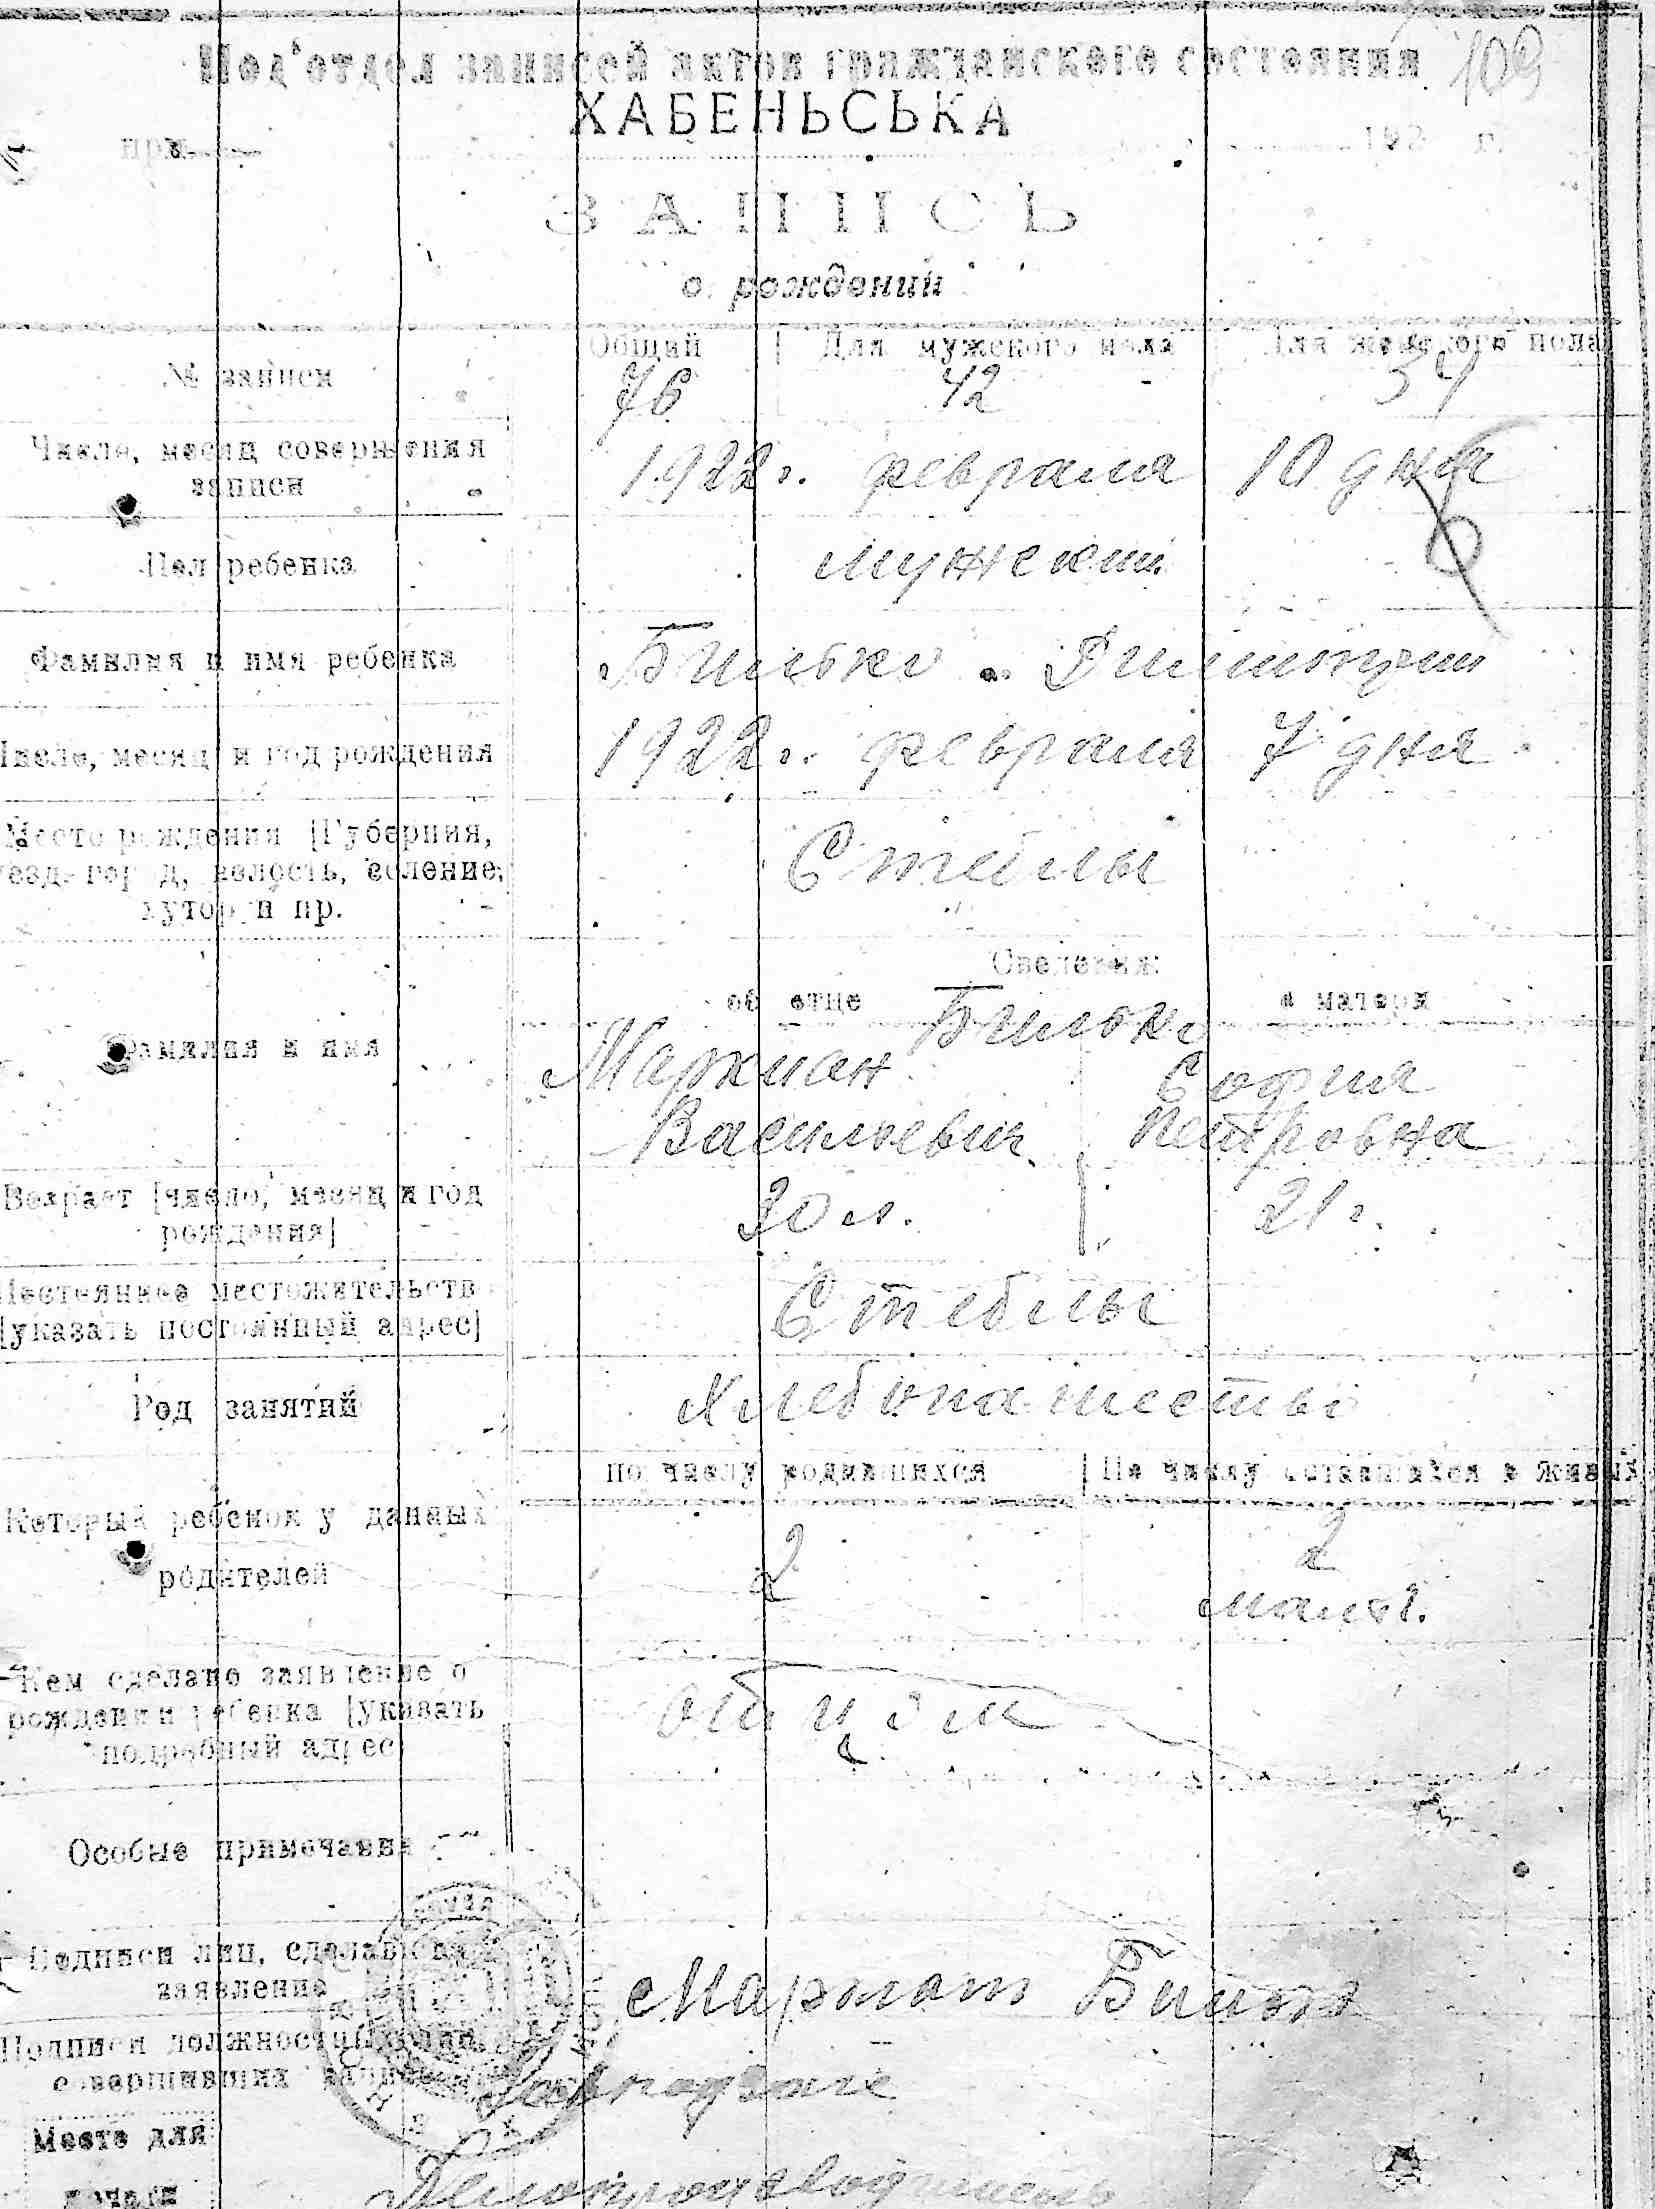 Под'отдел записей актов гражданского состояния 109
ХАБЕНЬСЬКА
при 192 г.
ЗАПИСЬ
о рождении
Общий Для мужского пола Для женского пола
№ записи 76 42 34
Число, месяц совершения
записи
1922 г. февраля 10 дня
Пол ребенка мужский
Фамилия и имя ребенка Билько Димитрий
Число, месяц и год рождения 1922 г. февраля 7 дня
Место рождения [Губерния,
уезд, город, волость, селение,
хутор и пр.
Стеблы
Сведения:
об отце Билько о матери
Фамилия и имя Маркиан София
Васильевич Петровна
Возраст [число, месяц и год
рождения]
30 л. 21 г.
Постоянное местожительств
[указать постоянный адрес]
Стеблы
Род занятий Хлебопашество
по числу родившихся По числу оставшихся в живых
Который ребенок у данных
родителей
2 2
мальч.
Кем сделано заявление о
рождении ребенка [указать
подробный адрес
отцом
Особые примечания
Подписи лиц, сделавших
заявление
Билько
Подписи должностных лиц,
совершивших запись
Завподзаге
Место для
печати
Делопроизводитель